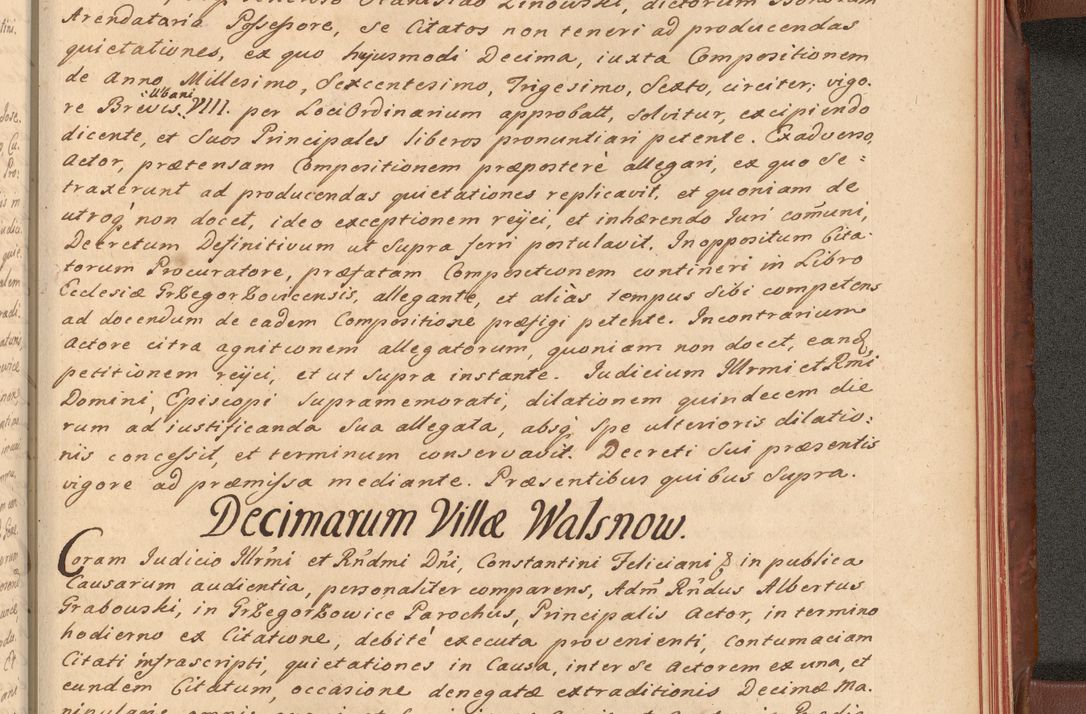 Arendatario Possessore, se Citatos non teneri ad producendas
quietationes, ex quo hujusmodi Decima, iuxta Compositionem
de Anno Millesimo, Sexcentesimo, Trigesimo, Sexto, circiter, vigo-
:Urbani
re Brevis VIII. per Loci Ordinarium approbatt, solvitur, excipiendo
dicente, et Suos Principales liberos pronuntiari petente. Ex adverso,
Actor, prætensam Compositionem præposterè allegari, ex quo se=
traxerunt ad producendas quietationes replicavit, et quoniam de
utroq́ non docet, ideo exceptionem reijci, et inhærendo Iuri coṁuni,
Decretum Definitivum ut supra ferri postulavit. In oppositum Cita-
torum Procuratore, præfatam Compositionem contineri in Libro
Ecclesiæ GrZegorZovicensis, allegante, et aliàs tempus sibi competens
ad docendum de eadem Compositione præfigi petente. In contrarium
Actore citra agnitionem allegatorum, quoniam non docet, eand
petitionem reijci, et ut supra instante. Iudicium Illrmi et Rmi
Domini Episcopi supramemorati, dilationem quindecem die
rum ad iustificanda sua allegata, absq́ spe ulterioris dilatio=
nis concessit, et terminum conservavit. Decreti sui præsentis
vigore ad præmissa mediante. Præsentibus quibus supra.
Decimarum Villæ Walsnow.
Coram Iudicio Illrmi et Rńdmi Dńi, Constantini Feliciani & in publica
Causarum audientia, personaliter comparens, Adm̃ Rńdus Albertus
Grabowski, in GrZegorZowice Parochus, Principalis Actor, in termino
hodierno ex Citatione, debitè executa provenienti, contumaciam
Citati infrascripti, quietationes in Causa, inter se Actorem ex una, et
eundem Citatum, occasione denegatæ extraditionis Decimæ Ma-